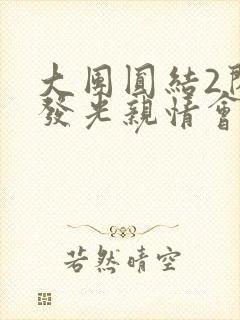 大団圓結2
發光親情會
若然晴空